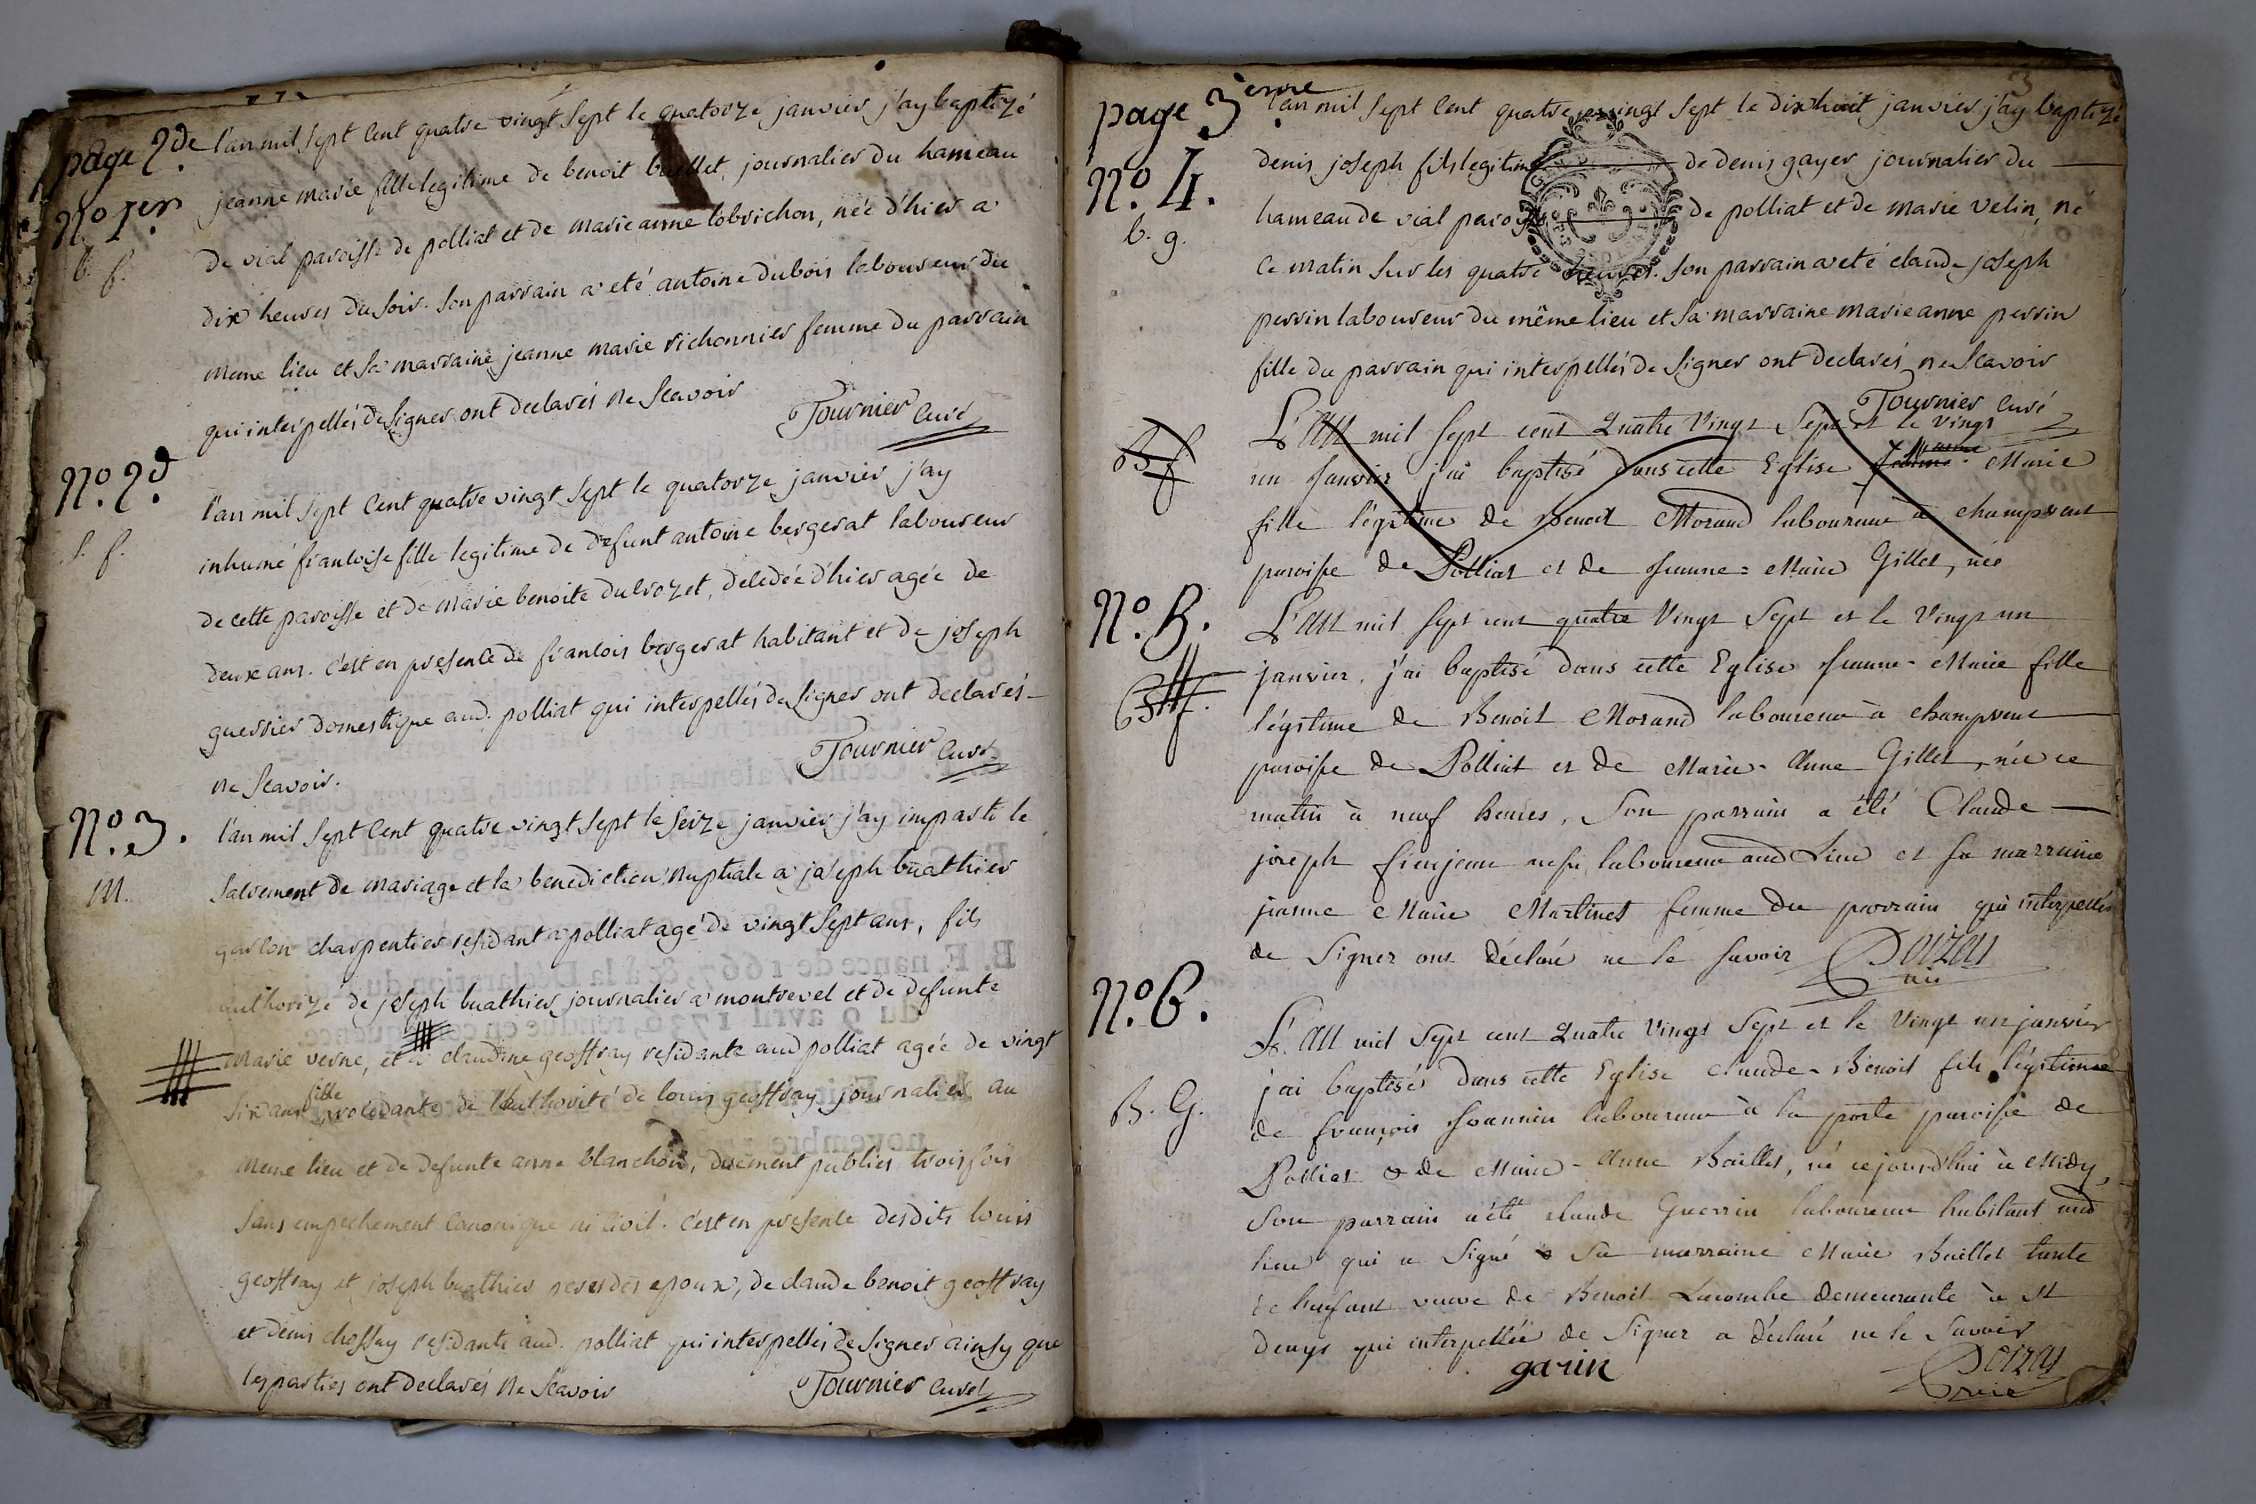 page 2de
l'an mil sept cent quatre vingt sept le quatorze janvier j'ay baptizé
No. 1er.
b. f.
jeanne marie fille legitime de benoit buillet, journalier du hameau
de vial paroisse de polliat et de marie anne lobrichon, née d'hier a
dix heures du soir. son parrain a eté antoine dubois laboureur du
meme lieu et sa marraine jeanne marie richonnier femme du parrain
qui interpellés de signer ont declarés ne scavoir
Tournier curé
No. 2d.
s. f.
l'an mil sept cent quatre vingt sept le quatorze janvier j'ay
inhumé francoise fille legitime de defunt antoine bergerat laboureur
de cette paroisse et de marie benoite ducrozet, decedée d'hier agée de
deux ans. c'est en presence de francois bergerat habitant et de joseph
guerrier domestique aud. polliat qui interpellés de signer ont declarés
ne scavoir.
Tournier curé
No. 3.
m.
l'an mil sept cent quatre vingt sept le seize janvier j'ay imparti le
sacrement de mariage et la benediction nuptiale a joseph buathier
garcon charpentier residant a polliat agé de vingt sept ans, fils
authorizé de joseph buathier journalier a montrevel et de defunte
marie verne, et a claudine geoffray residante aud polliat agée de vingt
six ans fille procedante de l'authorité de louis geoffray journalier au
meme lieu et de defunte anne blanchon, duement publies trois fois
sans empechement canonique ni civil. c'est en presence desdits louis
geoffray et joseph buathier peres des epoux, de claude benoit geoffray
et denis chossay residants aud. polliat qui interpellés de signer ainsy que
les parties ont declarés ne scavoir
Tournier curé
page 3eme
3
No. 4.
b. g.
l'an mil sept cent quatre vingt sept le dix huit janvier j'ay baptizé
denis joseph fils legitime de denis gayer journalier du
hameau de vial paroisse de polliat et de marie velin, né
ce matin sur les quatre heures. son parrain a eté claude joseph
perrin laboureur du même lieu et sa marraine marie anne perrin
fille du parrain qui interpellés de signer ont declarés ne scavoir
Tournier curé
B f
L'an mil sept cent Quatre Vingt Sept et le vingt
un Janvier j'ai baptisé dans cette Eglise Jeanne Marie
fille légitime de Benoit Morand laboureur à champvent
paroisse de Polliat et de Jeanne = Marie Gillet, née
No. 5.
B f.
L'an mil sept cent quatre Vingt Sept et le Vingt un
janvier, j'ai baptisé dans cette Eglise Jeanne - Marie fille
légitime de Benoit Morand laboureur à champvent
paroisse de Polliat et de Marie - Anne Gillet, née ce
matin à neuf heures, Son parrain a été Claude
joseph laboureur aud Lieu et sa marraine
jeanne Marie Martinet femme du parrain qui interpellés
de signer ont déclaré ne le savoir Doizas
vic
No. 6.
B. G.
L'an mil sept cent Quatre Vingt Sept et le Vingt un janvier
j'ai baptisé dans cette Eglise claude - Benoit fils légitime
de françois Joannin laboureur à la porte paroisse de
Polliat & de Marie - Anne Baillet, né cejourd'hui à Midy,
Son parrain a été claude Guerrin laboureur habitant aud
lieu qui a signé & Sa marraine Marie Baillet tante
de l'enfant veuve de Benoit Lacombe demeurante à St
Denys qui interpellée de Signer a déclaré ne le Savoir
garin
Doizas
vic